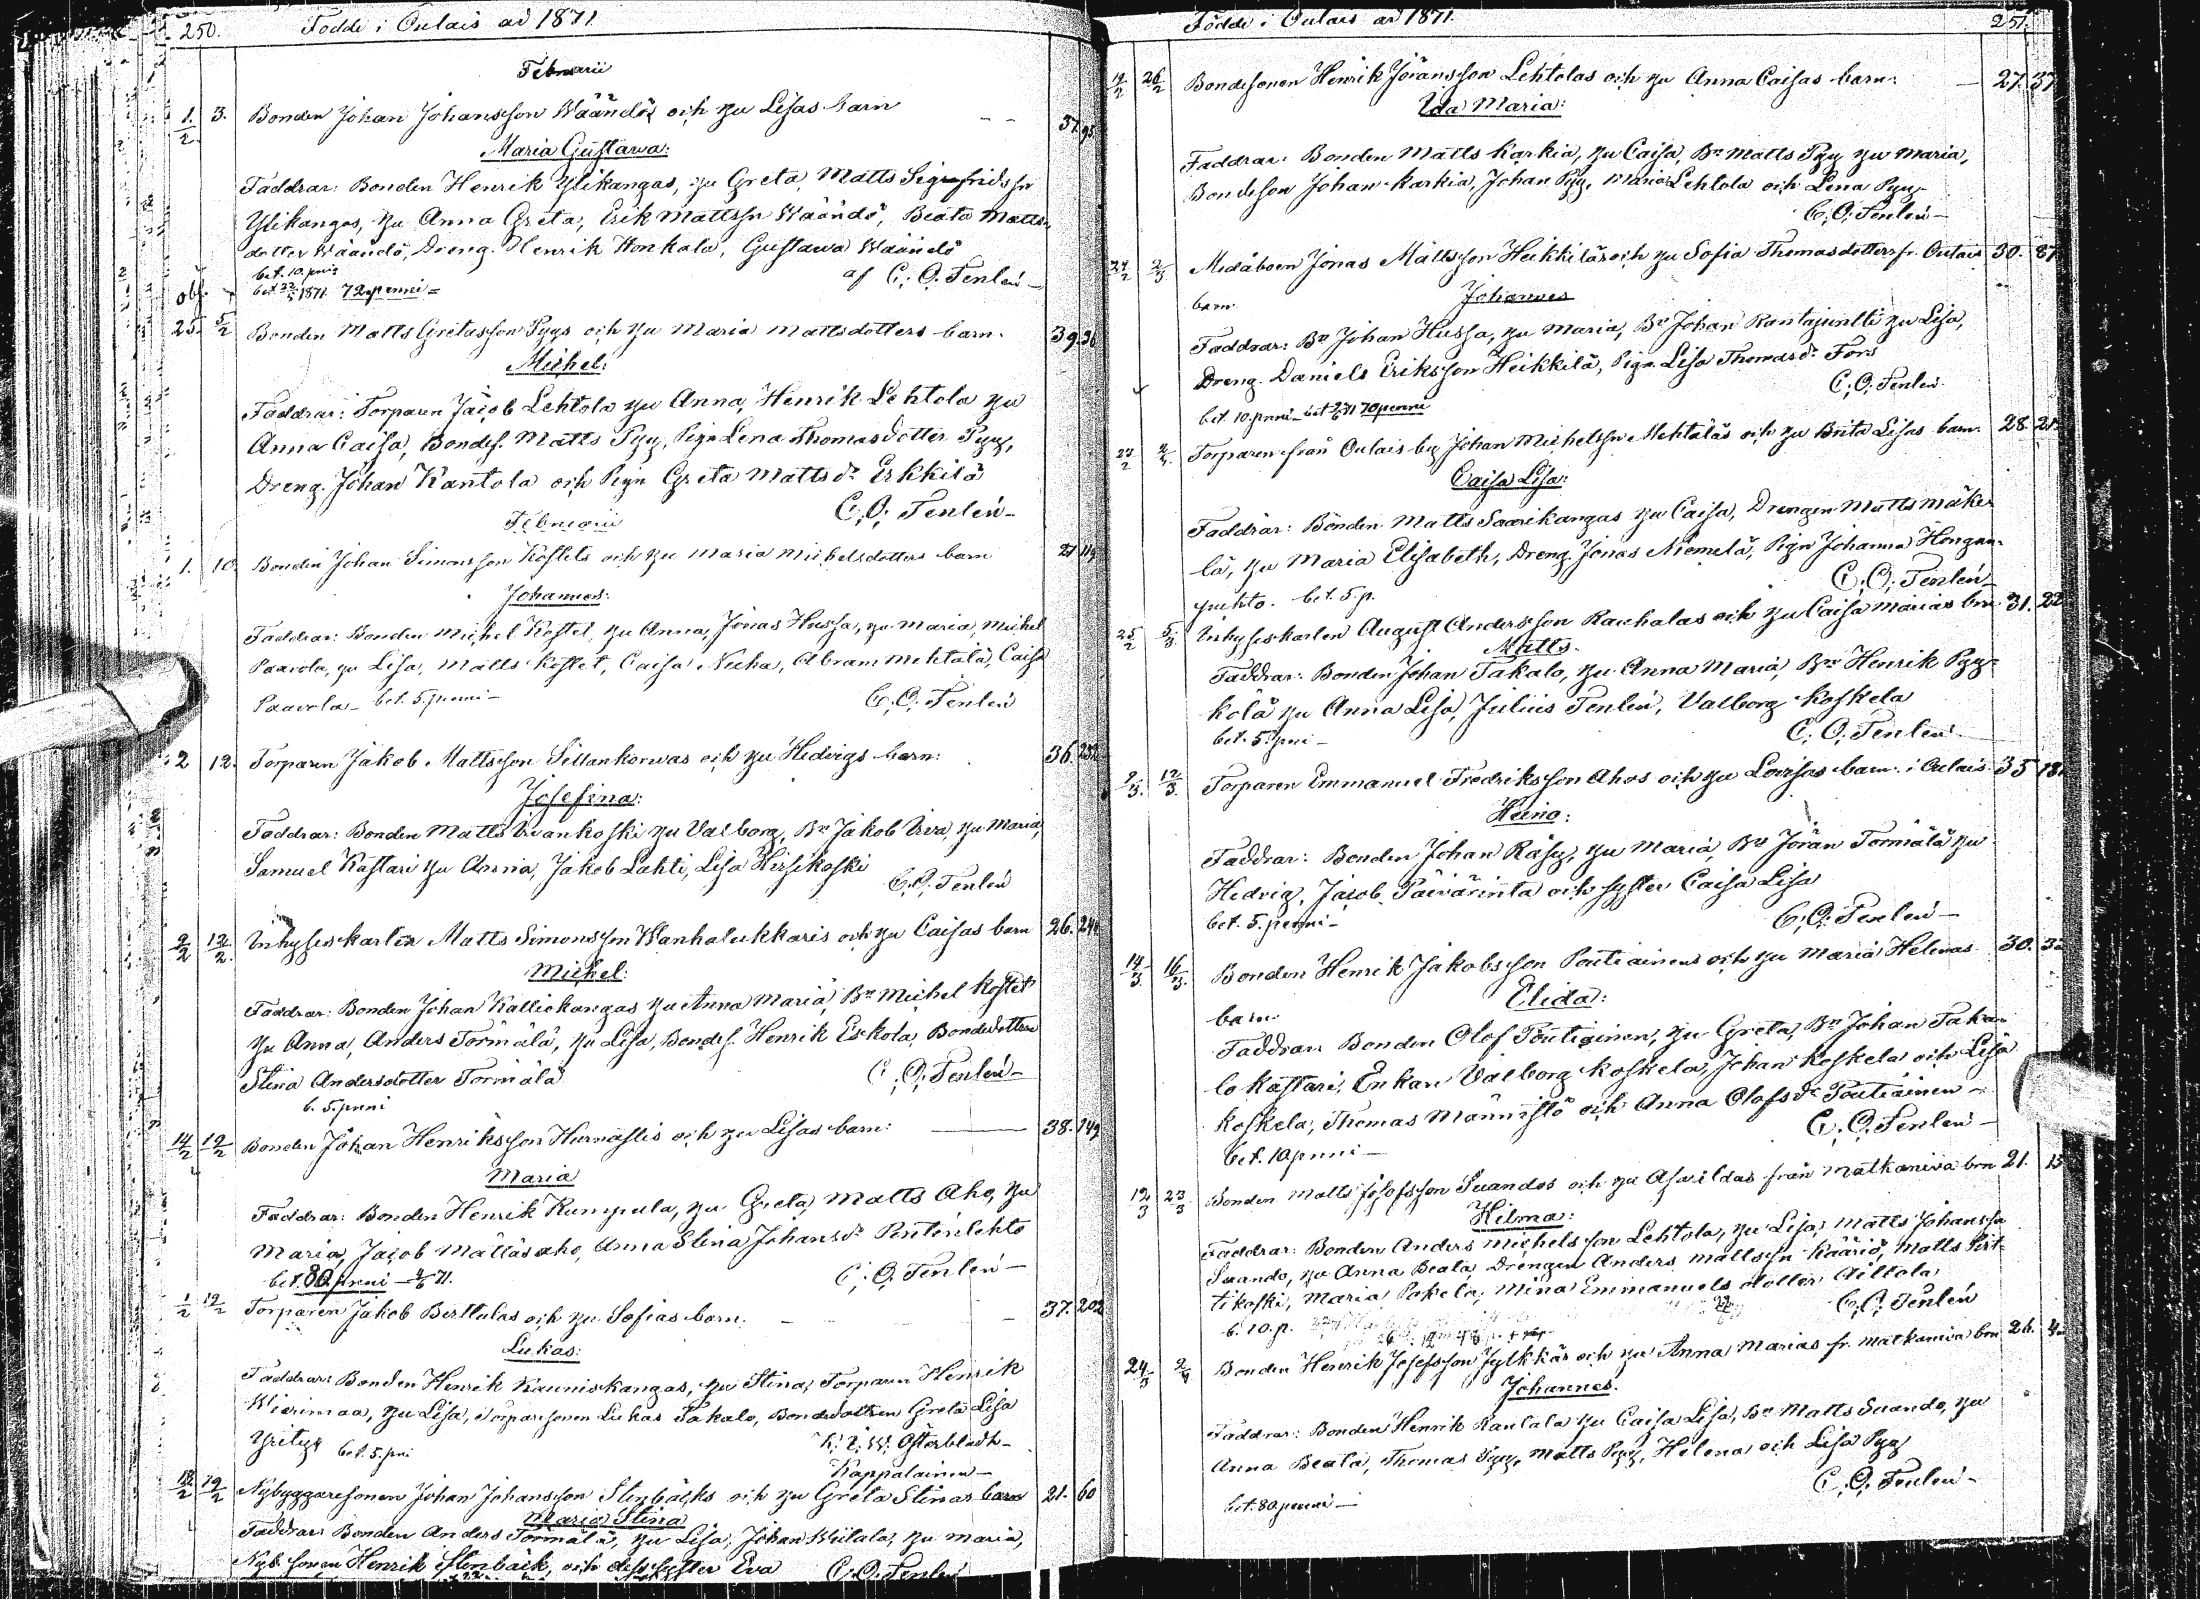 250. Födde i Oulais år 1871.
Februarii
1/2 3. Bonden Johan Johansson Wäändös och hu Lisas barn 37. 95
Maria Gustawa:
Faddrar: Bonden Henrik Ylikangas, hu Greta, Matts Sigfridssn
Ylikangas, hu Anna Greta, Erik Mattssn Wäändö, Beata Matts-
dotter Wäändö, Dreng. Henrik Honkala, Gustawa Wäändö
bet. 10 pni
af C. O. Tenlén
obs. bet 1871 72 penni
25. 5/2 Bonden Matts Gretasson Pyys och hu Maria Mattsdotters barn. 39.
Michel:
Faddrar: Torparen Jacob Lehtola hu Anna, Henrik Lehtola hu
Anna Caisa, Bondes. Matts Pyy, Pign Lena Thomasdotter Pyy,
Dreng. Johan Kantola och Pign Greta Mattsdr Erkkilä
C. O. Tenlén
Februarii
1. 10. Bonden Johan Simonsson Kostets och hu Maria Michelsdotters barn 27
Johannes:
Faddrar: Bonden Michel Kostet, hu Anna, Jonas Hussa, hu Maria, Michel
Paavola, hu Lisa, Matts Kostet, Caisa Niuha, Abram Mehtälä, Caisa
Paavola bet. 5. penni
C. O. Tenlén
2 12. Torparen Jakob Mattsson Sillankorwas och hu Hedvigs barn: 36.
Josefina:
Faddrar: Bonden Matts Kivankoski hu Valborg, Bn Jakob Irva, hu Maria,
Samuel Kastari hu Anna, Jakob Lahti, Lisa Hirsikoski
C. O. Tenlén
9/2 12/2. Inhyseskarlen Matts Simonsson Wanhalukkaris och hu Caisas barn 26.
Michel:
Faddrar: Bonden Johan Kalliokangas hu Anna Maria, Bn Michel Kostet
hu Anna, Anders Törmälä, hu Lisa, Bondes. Henrik Eskola, Bondedottren
Stina Andersdotter Törmälä
C. O. Tenlén
b. 5. pnni
14/2 19/2 Bonden Johan Henriksson Hurnaslis och hu Lisas barn: 38. 149
Maria
Faddrar: Bonden Henrik Kumpula, hu Greta, Matts Aho, hu
Maria, Jacob Mattasaho, Anna Stina Johansdr Pentinlehto
bet. 80 pnni 71.
C. O. Tenlén
1/2 19/2 Torparen Jakob Berttulas och hu Sofias barn. 37. 202
Lukas:
Faddrar: Bonden Henrik Kauniskangas, hu Stina, Torparen Henrik
Wierimaa, hu Lisa, Torparesonen Lukas Takalo, Bondedottren Greta Lisa
Yritys bet. 5. pni
Österbladh
Kappalainen
12/2 19/2 Nybyggaresonen Johan Johansson Stenbäcks och hu Greta Stinas barn 21. 60
Maria Stina
Faddrar: Bonden Anders Törmälä, hu Lisa, Johan Wiitala, hu Maria,
Nyb. sonen Henrik Stenbäck, och dess syster Eva C. O. Tenlén
Födde i Oulais år 1871. 251.
19/2 26/2 Bondesonen Henrik Jöransson Lehtolas och hu Anna Caisas barn: 27. 37
Ida Maria:
Faddrar: Bonden Matts Karkia, hu Caisa, Bn Matts Pyy hu Maria,
Bondeson Johan Karkia, Johan Pyy, Maria Lehtola och Lena Pyy
C. O. Tenlén
24/2 2/3 Medåboen Jonas Mattsson Heikkiläs och hu Sofia Thomasdotters fr. Oulais 30. 87
barn. Johannes
Faddrar: Bn Johan Hussa, hu Maria, Bn Johan Rantajuntti hu Lisa,
Dreng. Daniels Eriksson Heikkilä, Pign Lisa Thomasdr Fors
C. O. Tenlén
bet. 10. pnni bet 71 70 penni
Torparen från Oulais by Johan Michelssn Mehtäläs och hu Brita Lisas barn. 28. 21
Caisa Lisa:
Faddrar: Bonden Matts Saarikangas hu Caisa, Drengen Matts Mäke-
lä, hu Maria Elisabeth, Dreng. Jonas Niemelä, Pign Johanna Hongan-
puhto. bet. 5. p.
C. O. Tenlén
25/2 5/3 Inhyseskarlen August Andersson Rauhalas och hu Caisa Marias brn 31. 22
Matts.
Faddrar: Bonden Johan Takalo, hu Anna Maria, Bn Henrik Pyy-
kölä hu Anna Lisa, Julius Tenlén, Valborg Koskela
bet. 5. pni
C. O. Tenlén
9/3. 12/3. Torparen Emmanuel Fredriksson Ahos och hu Lovisas barn i Oulais 35 18
Heino:
Faddrar: Bonden Johan Räsy, hu Maria, Bn Jöran Törmälä hu
Hedvig, Jacob Päivärinta och syster Caisa Lisa
bet. 5. penni
C. O. Tenlén
14/3. 16/3. Bonden Henrik Jakobsson Poutiainens och hu Maria Helenas 30.
barn. Elida:
Faddrar: Bonden Olof Poutiainen, hu Greta, Bn Johan Taka-
lo Kastari, Enkan Valborg Koskela, Johan Koskela och Lisa
Koskela, Thomas Männistö och Anna Olofsdr Poutiainen
C. O. Tenlén
bet. 10 pnni
19/3 23/3 Bonden Matts Josefsson Suandos och hu Asarildas från Matkaniva brn 21. 15
Hilma:
Faddrar: Bonden Anders Michelsson Lehtola, hu Lisa, Matts Johanssn
Suando, hu Anna Beata, Drengen Anders Mattssn Kääriö, Matts Pirt-
tikoski, Maria Pokela, Mina Emmanuels dotter Aittola
b. 10. p.
C. O. Tenlén
24/3 2/4 Bonden Henrik Josefsson Jylkkäs och hu Anna Marias fr. Matkaniva brn 26.
Johannes.
Faddrar: Bonden Henrik Rautala hu Caisa Lisa, Bn Matts Suando, hu
Anna Beata, Thomas Pyy, Matts Pyy, Helena och Lisa Pyy
C. O. Tenlén
bet. 80 penni